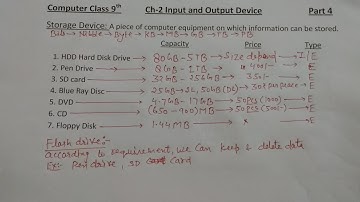 Computer Class 9th Ch-2 Input and Output Device Part 4
Storage Device: A piece of computer equipment on which information can be stored.
Bit → Nibble → Byte → KB → MB → GB → TB → PB
Capacity Price Type
1. HDD Hard Disk Drive → 80GB - 5TB → Size depend → I/E
2. Pen Drive → 8GB - 1TB → 400/- → E
3. SD card → 32GB - 256GB → 350/- → E
4. Blue Ray Disc → 25GB → → E
5. DVD → 4.7GB - 17GB → 50 Pcs → E
6. CD → (650 - 700) MB → 50 Pcs → E
7. Floppy Disk → 1.44 MB → x → E
Flash drive:-
according to requirement, we can keep & delete data
Ex:- Pen drive, SD card